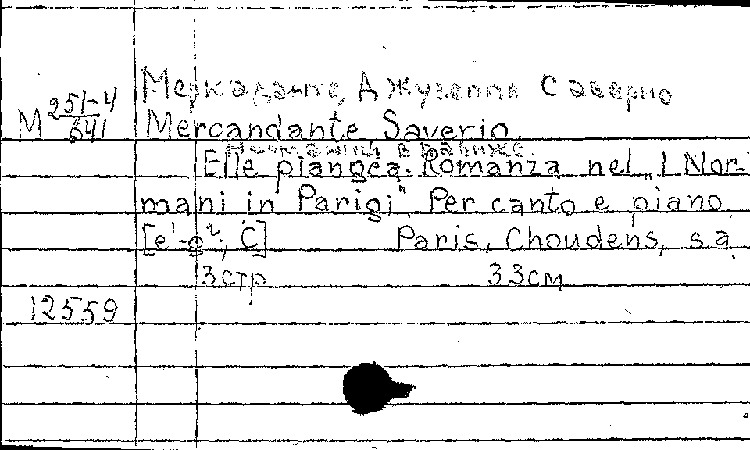 Меркаданте, Джузеппе Саверио
М 251-4/641
Mercandante Saverio
Норманны в Париже.
Elle piangea. Romanza nel „I Nor-
mani in Parigi". Per canto e piano
[e¹-g²; C] Paris, Choudens, s.a.
3 стр 33 см
12559